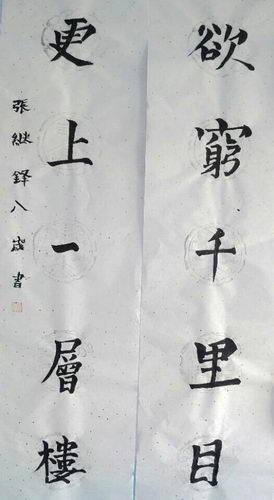 欲窮千里目
更上一層樓
張継鋒八歲書